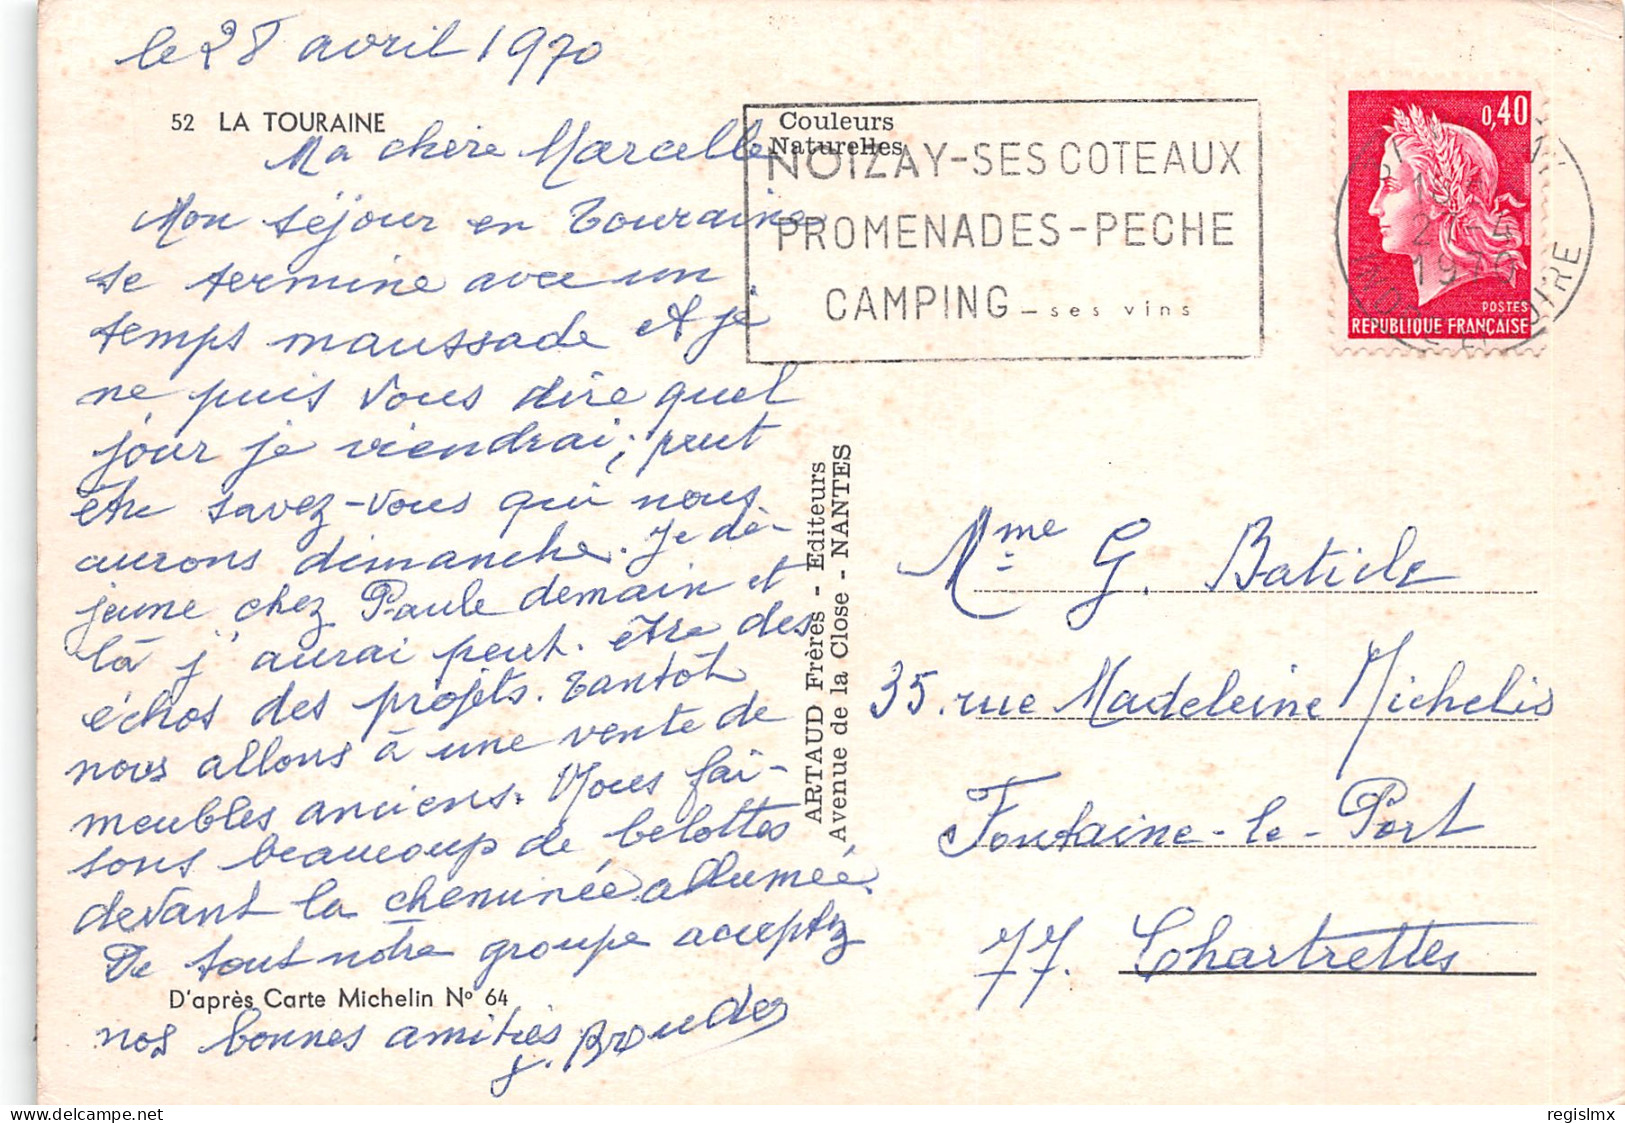 le 28 avril 1970
52 LA TOURAINE
Ma chère Marcelle
Mon séjour en Touraine
se termine avec un
temps maussade et je
ne puis vous dire quel
jour je viendrai; peut
être savez-vous qui nous
aurons dimanche. Je dé-
jeune chez Paule demain et
là j'aurai peut. être des
échos des projets. Tantôt
nous allons à une vente de
meubles anciens. Nous fai-
sons beaucoup de belottes
devant la cheminée allumée.
De tout notre groupe acceptez
D'après Carte Michelin Nº 64
nos bonnes amitiés
Couleurs
Naturelles
NOIZAY-SES COTEAUX
PROMENADES-PECHE
CAMPING - ses vins
0,40
2 -4
1970
POSTES
REPUBLIQUE FRANÇAISE
ARTAUD Frères - Editeurs
Avenue de la Close - NANTES
Mme G. Baticle
35. rue Madeleine Michelis
Fontaine-le-Port
77. Chartrettes
regislmx
delcampe.net